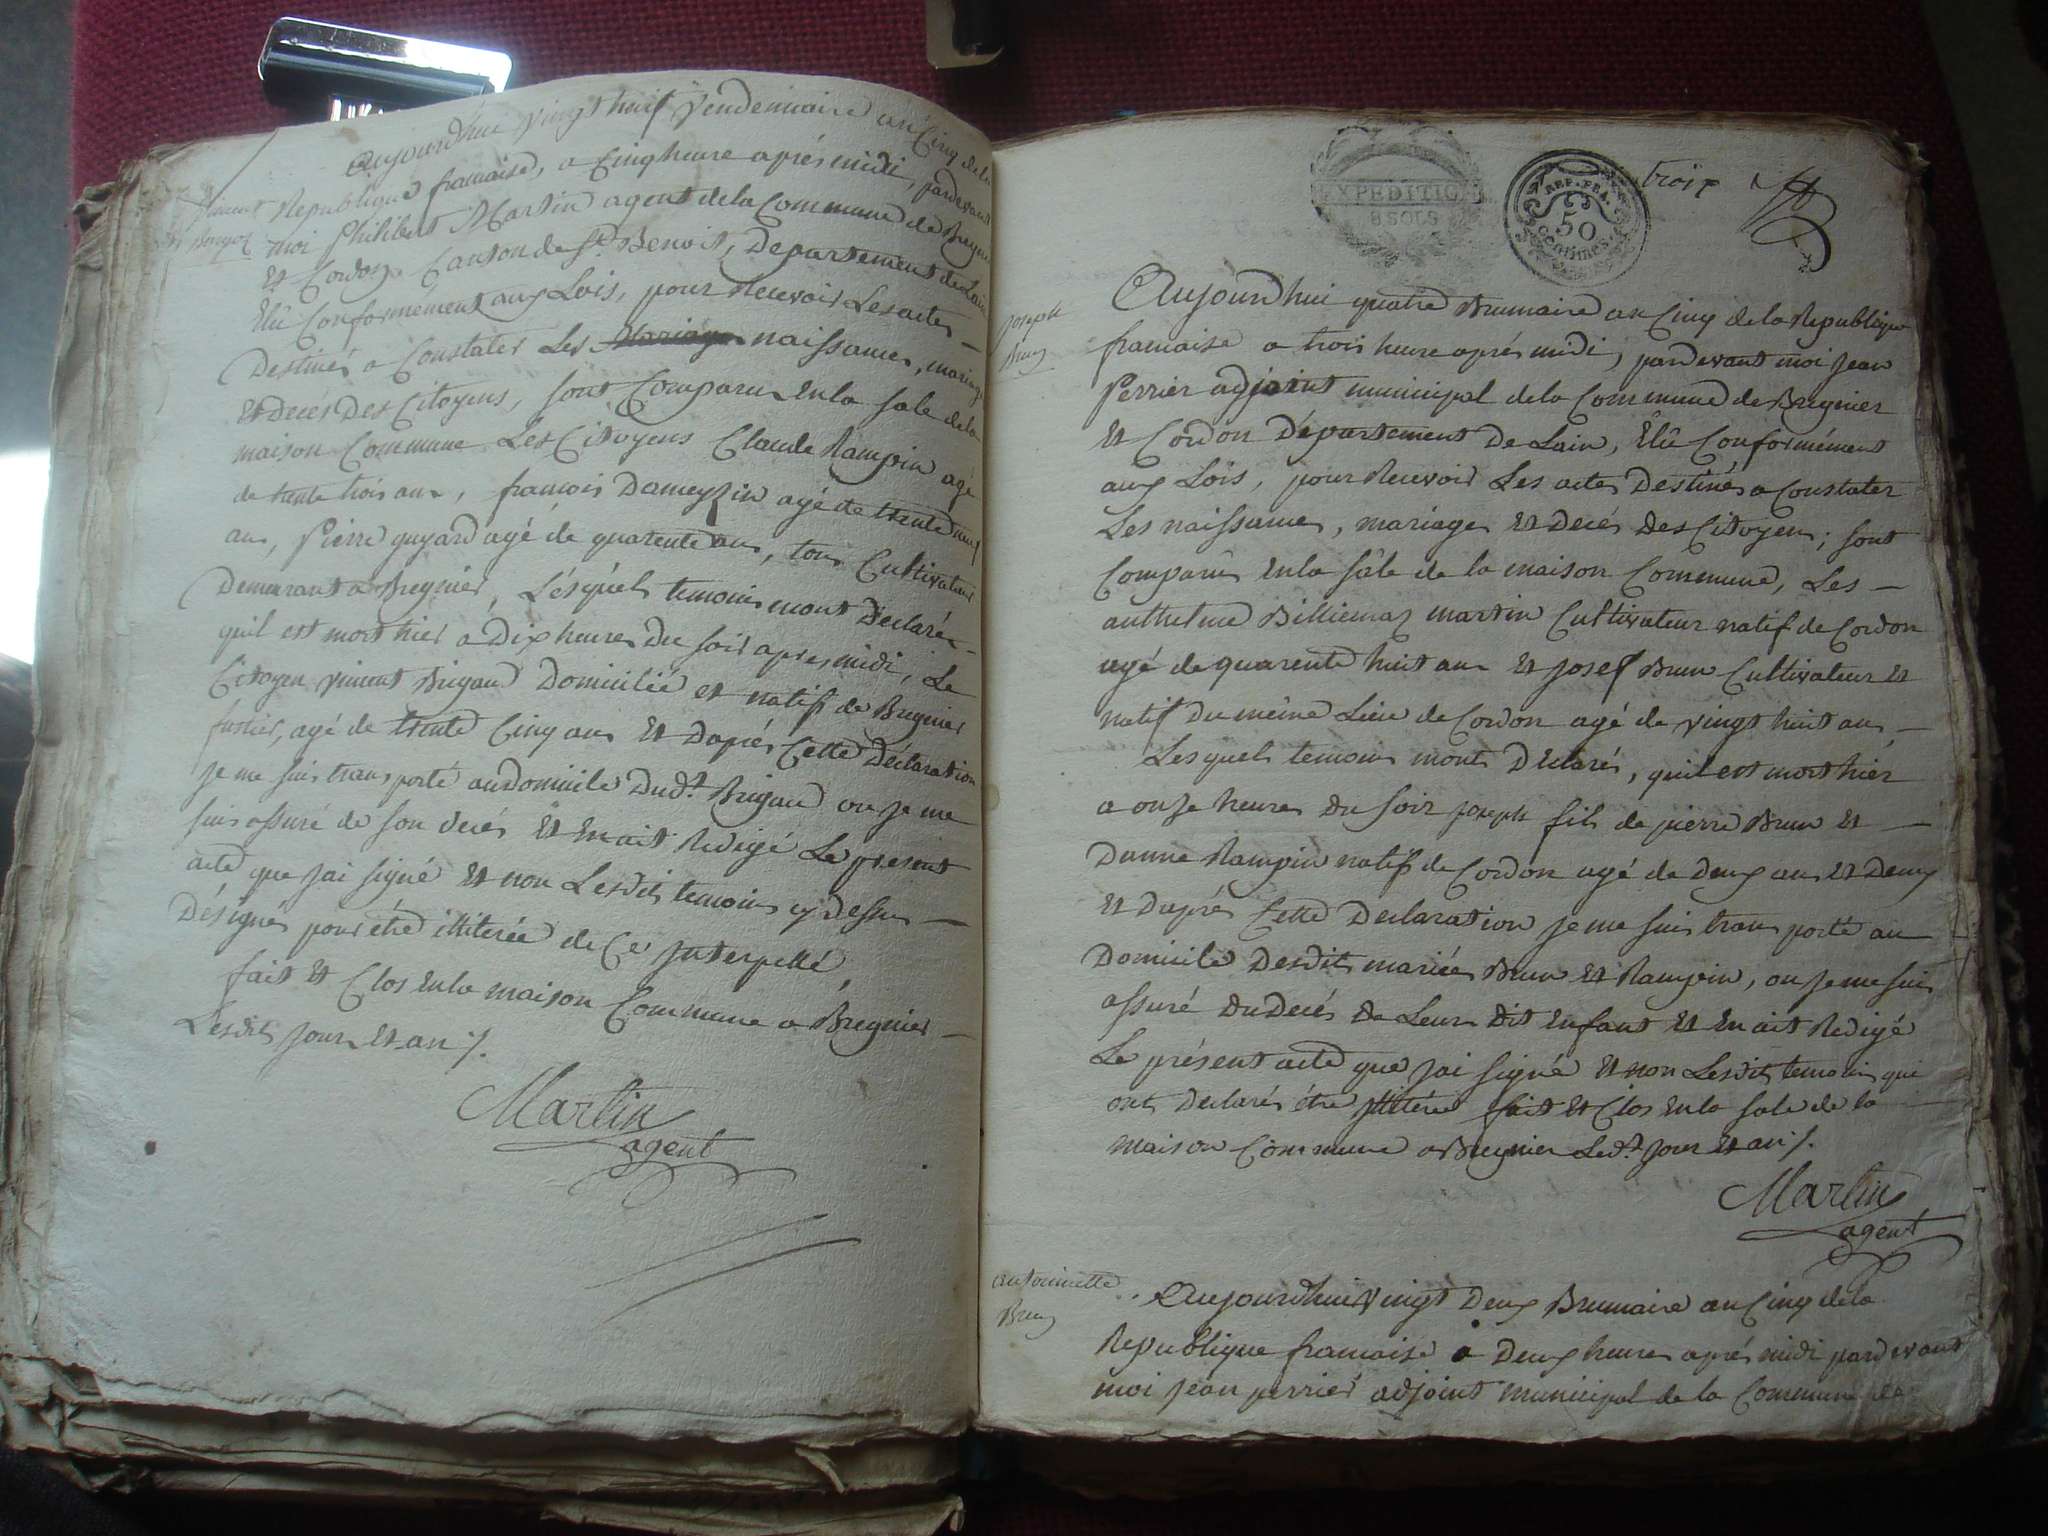 Aujourdhui vingt huit Vendemiaire an Cinq de la
Republique francaise, a Cinq heure aprés midi, pardevant
moi Philibert Martin agent de la Commune de Bregnier
Et Cordon Canton de St. Benoit, Departement de Lain
Elû Conformément aux Lois, pour Recevoir Les actes
Destinés a Constater Les Mariages naissances, mariage
Et Decés Des Citoyens, sont Comparus En la sale de la
maison Commune Les Citoyens Claude Rampin agé
de trente trois ans, francois Dameyzin agé de trente neuf
ans, Pierre guyard agé de quarente ans, tous Cultivateurs
Demeurant a Bregnier, Lésquels temoins mont Déclarés
quil est mort hier a Dix heures Du soir apres midi, Le
Citoyen Vincent Brigaud Domicilié et natif de Bregnier
fustier, agé de trente Cinq ans Et Daprés Cette Déclaration
Je me suis transporté au domicile Dud.t Brigaud ou je me
suis assuré de son Decés Et En ait Redigé Le present
acte que Jai signé Et non Lesdits temoins cy Dessus
Désignés pour étre illiterée de Ce Interpellé,
fait Et Clos En la maison Commune a Bregnier
Lesdits Jour Et an /.
Martin
agent
EXPEDITION
8 SOLS
REP. FRA.
50
centimes.
trois
Joseph
Brun
Aujourdhui quatre Brumaire an Cinq de la Republique
francaise a trois heure aprés midi, pardevant moi Jean
Perrier adjoint municipal de la Commune de Bregnier
Et Cordon Département De Lain, Elû Conformément
aux Lois, pour Recevoir Les actes Destinés a Constater
Les naissances, mariages Et Decés Des Citoyens; sont
Comparus En la sâle de la maison Commune, Les
anthelme Billiemaz martin Cultivateur natif de Cordon
agé de quarente huit ans Et Josef Brun Cultivateur Et
natif Du même Lieu de Cordon agé de vingt huit ans
Lesquels temoins monts Déclarés, quil est mort hiér
a onze heures du soir Joseph fils de pierre Brun Et
Danne Rampin natif de Cordon agé de Deux ans Et Demy
Et Daprés Cette Declaration Je me suis transporté au
Domicile Desdits mariées Brun Et Rampin, ou Je me suis
assuré Du Decés de Leur dit Enfant Et En ait Redigé
Le présent acte que Jai signé Et non Lesdits temoins qui
onts Declarés étre illitérés fait Et Clos En la sale de la
maison Commune a Bregnier Led.t Jour Et an /.
Martin
agent
antoinette
Brun
Aujourdhui vingt Deux Brumaire an Cinq de la
Republique francaise a Deux heures aprés midi pardevant
moi Jean perrier adjoint municipal de la Commune de